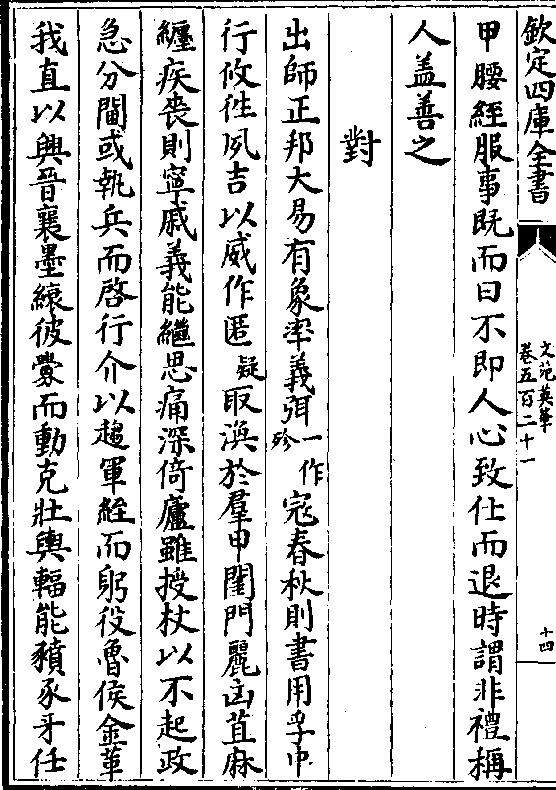 欽定四庫全書
文苑英華
卷五百二十一
十四
甲腰絰服事既而曰不即人心致仕而退時謂非禮稱
人盖善之
對
出師正邦大易有象率義弭一作殄寇春秋則書用孚巾
行攸徃夙吉以威作匿疑取渙於羣申閨門麗凶苴麻
纏疾喪則寧戚義能繼思痛深倚廬雖授杖以不起政
急分閫或執兵而啓行介以趨軍絰而躬役魯侯金革
我直以興晉襄墨縗彼釁而動克壯輿輻能豶豕牙任